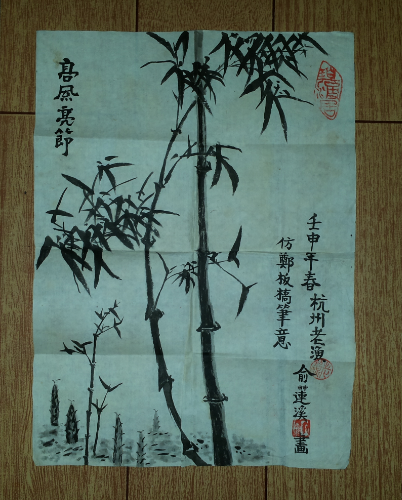 高风亮節
壬申年春杭州老漁
仿鄭板橋筆意
俞蓮溪畫